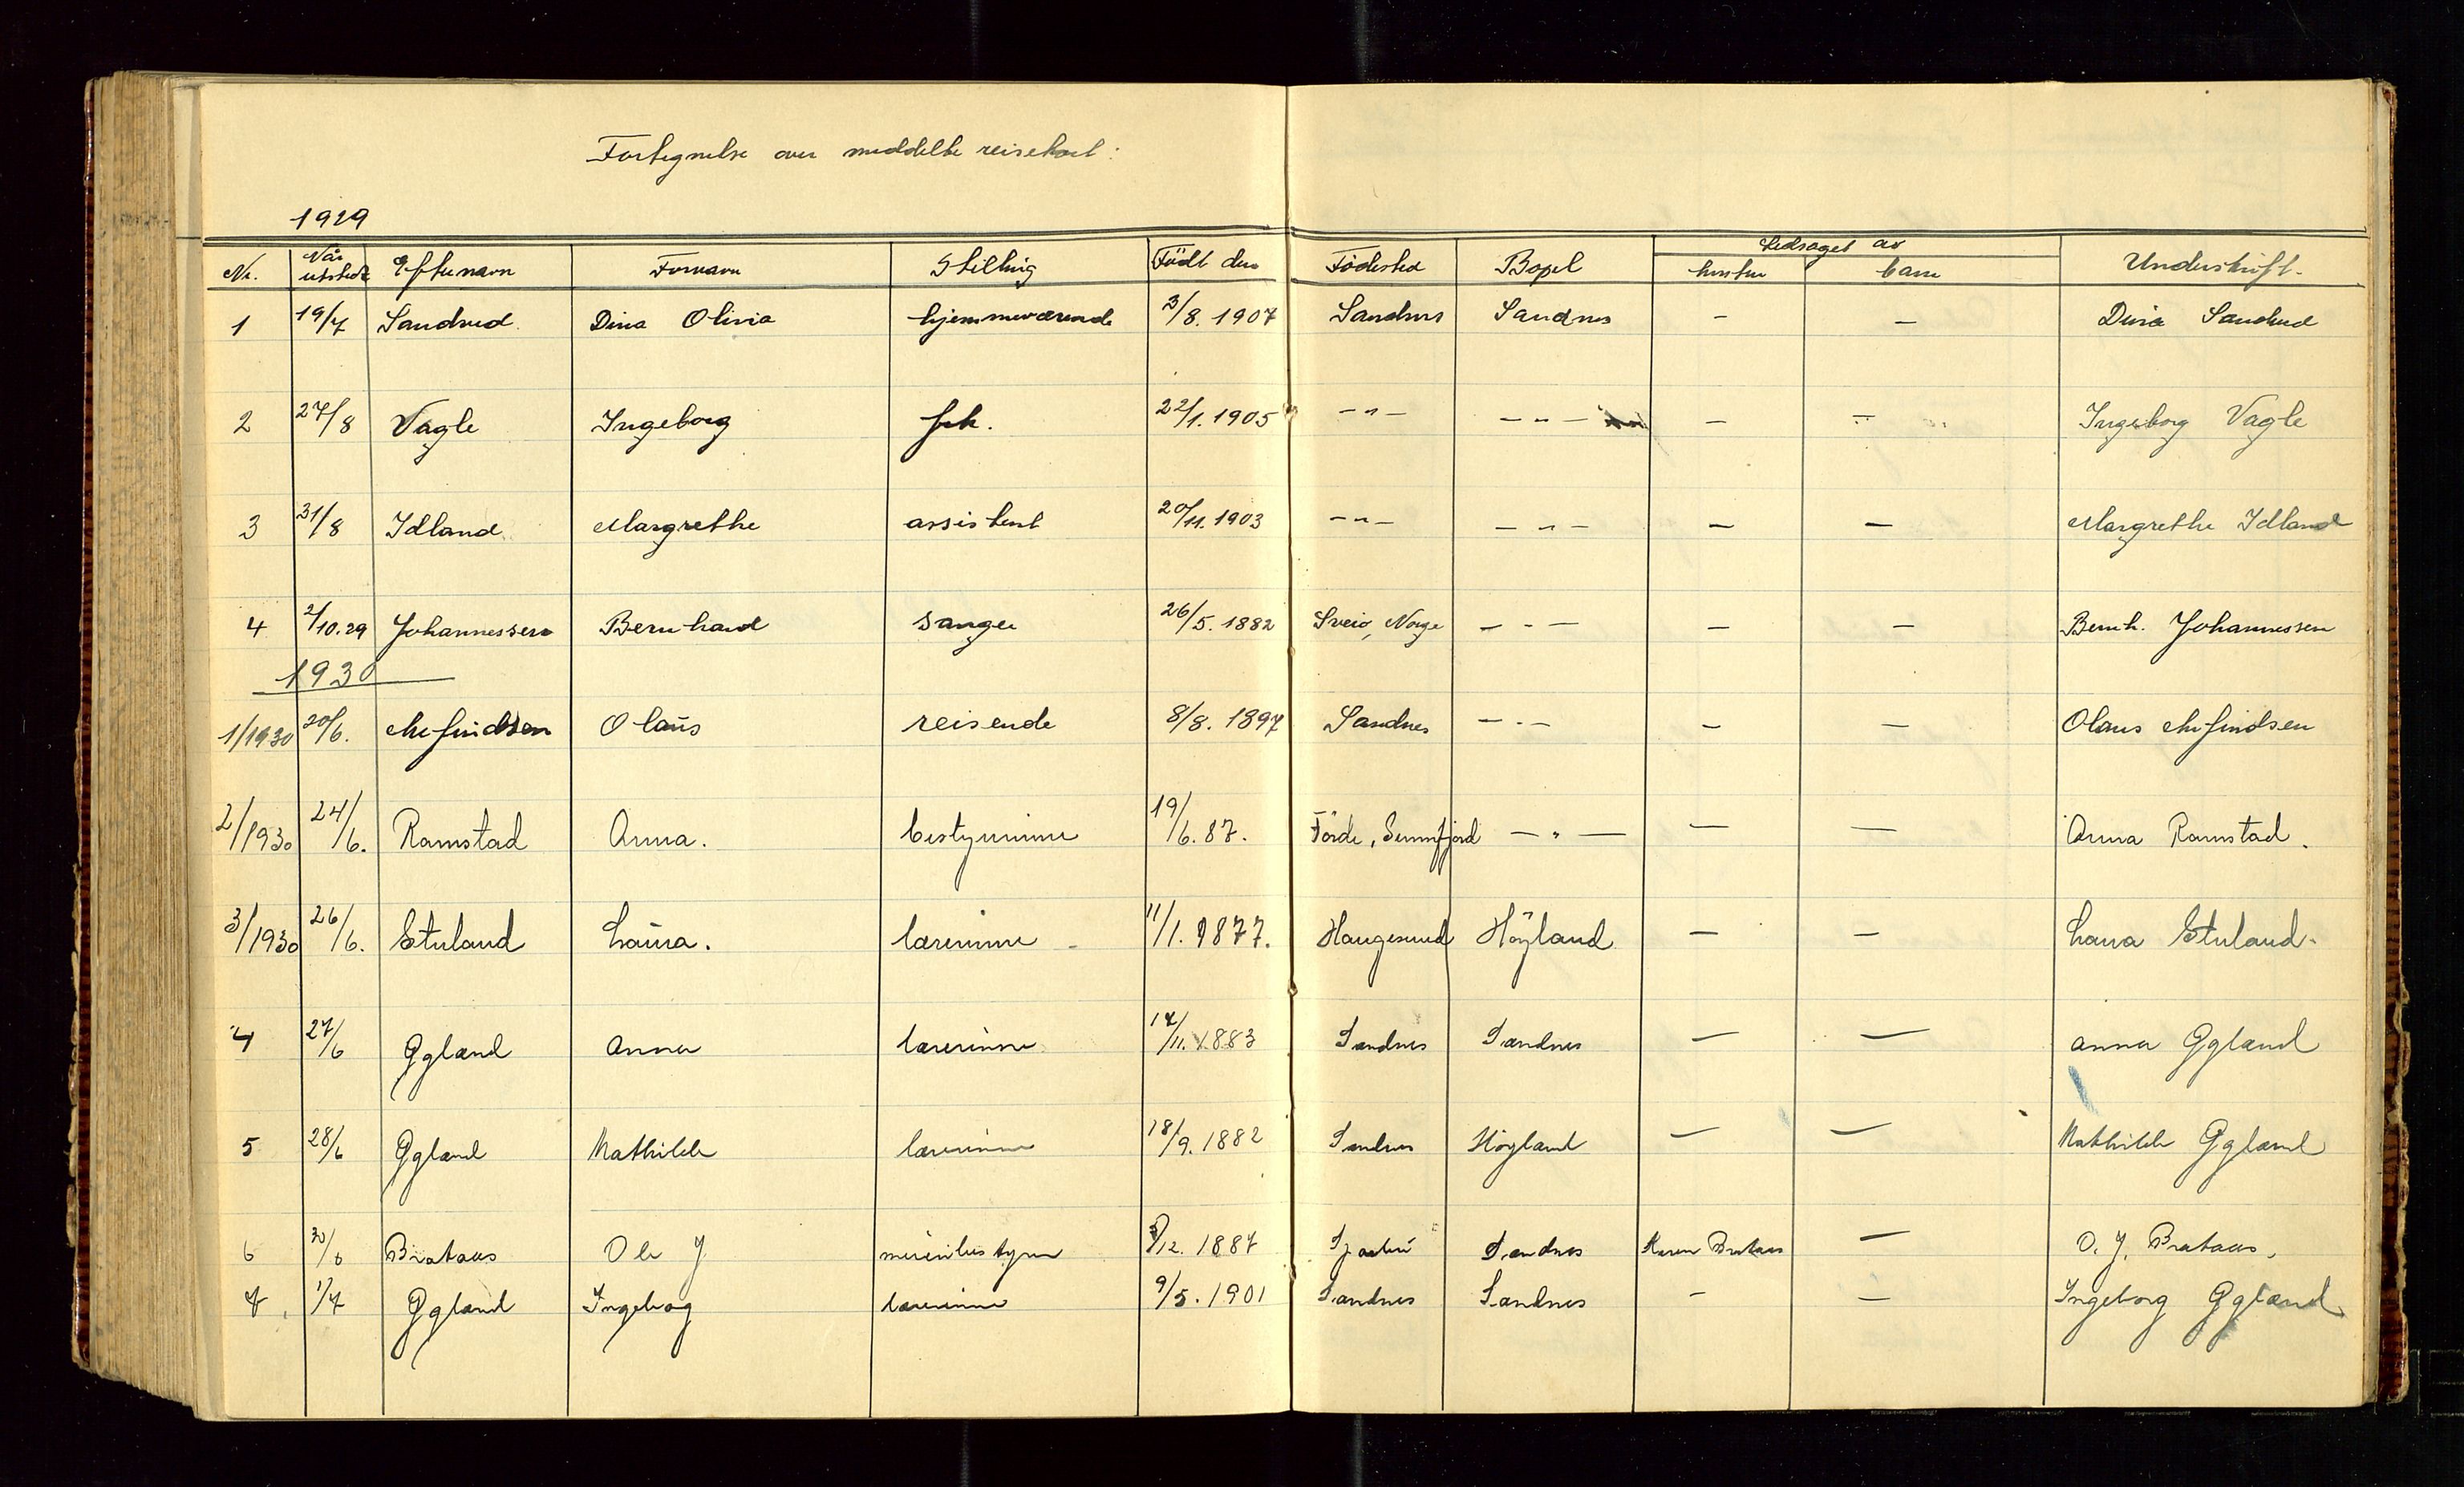 Fortegnelse over meddelte reisekort:
1929
Nr. Når utstedt Efternavn Fornavn Stilling Född den Födested Bopel Ledsaget av hustru barn Underskrift.
1 19/7 Sandved Dina Olivia hjemmeværende 3/8. 1907 Sandnes Sandnes - - Dina Sandved
2 27/8 Vagle Ingeborg frk. 22/1. 1905 -"- -"- - - Ingeborg Vagle
3 31/8 Idland Margrethe assistent 20/11. 1903 -"- -"- - - Margrethe Idland
4 2/10.29 Johannessen Bernhard sanger 26/5. 1882 Sveio, Norge -"- - - Bernh. Johannessen
1930
1/1930 20/6. Olaus reisende 8/8. 1897 Sandnes -"- - - Olaus
2/1930 24/6. Ramstad Anna. bestyrerinne 19/6.87. Förde, Sunnfjord -"- - - Anna Ramstad.
3/1930 26/6. Stuland Laura. lærerinne - 11/1. 1877. Haugesund Höyland - - Laura Stuland.
4 27/6 Öglænd Anna lærerinne 14/11. 1883 Sandnes Sandnes - - Anna Öglænd
5 28/6 Öglænd Mathilde lærerinne 18/9. 1882 Sandnes Höyland - - Mathilde Öglænd
6 30/6 Brataas Ole J meieribestyrer /12. 1887 Sandnes Karen Brataas - O. J. Brataas.
7 1/7 Öglænd Ingeborg lærerinne 9/5. 1901 Sandnes Sandnes - - Ingeborg Öglænd